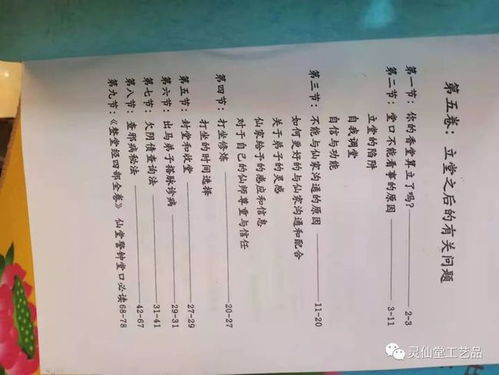 第五卷：立堂之后的有关问题
第一节：你的香堂算立了吗？ 2-3
第二节：堂口不能看事的原因 3-11
立堂的陷阱
自我调堂
自信与功能
第三节：不能与仙家沟通的原因 11-20
如何更好的与仙家沟通和配合
关于弟子的灵感
仙家给予的感应和信息
对于自己的仙师尊重与信任
第四节：打坐修炼 20-27
打坐的时间选择
第五节：封堂和收堂 27-29
第六节：出马弟子搭脉诊病 29-31
第七节：欠阴债查询法 31-41
第八节：查邪病秘法 42-67
第九节：《整堂经四部全卷》 仙堂警钟堂口必读68-78
灵仙堂工艺品